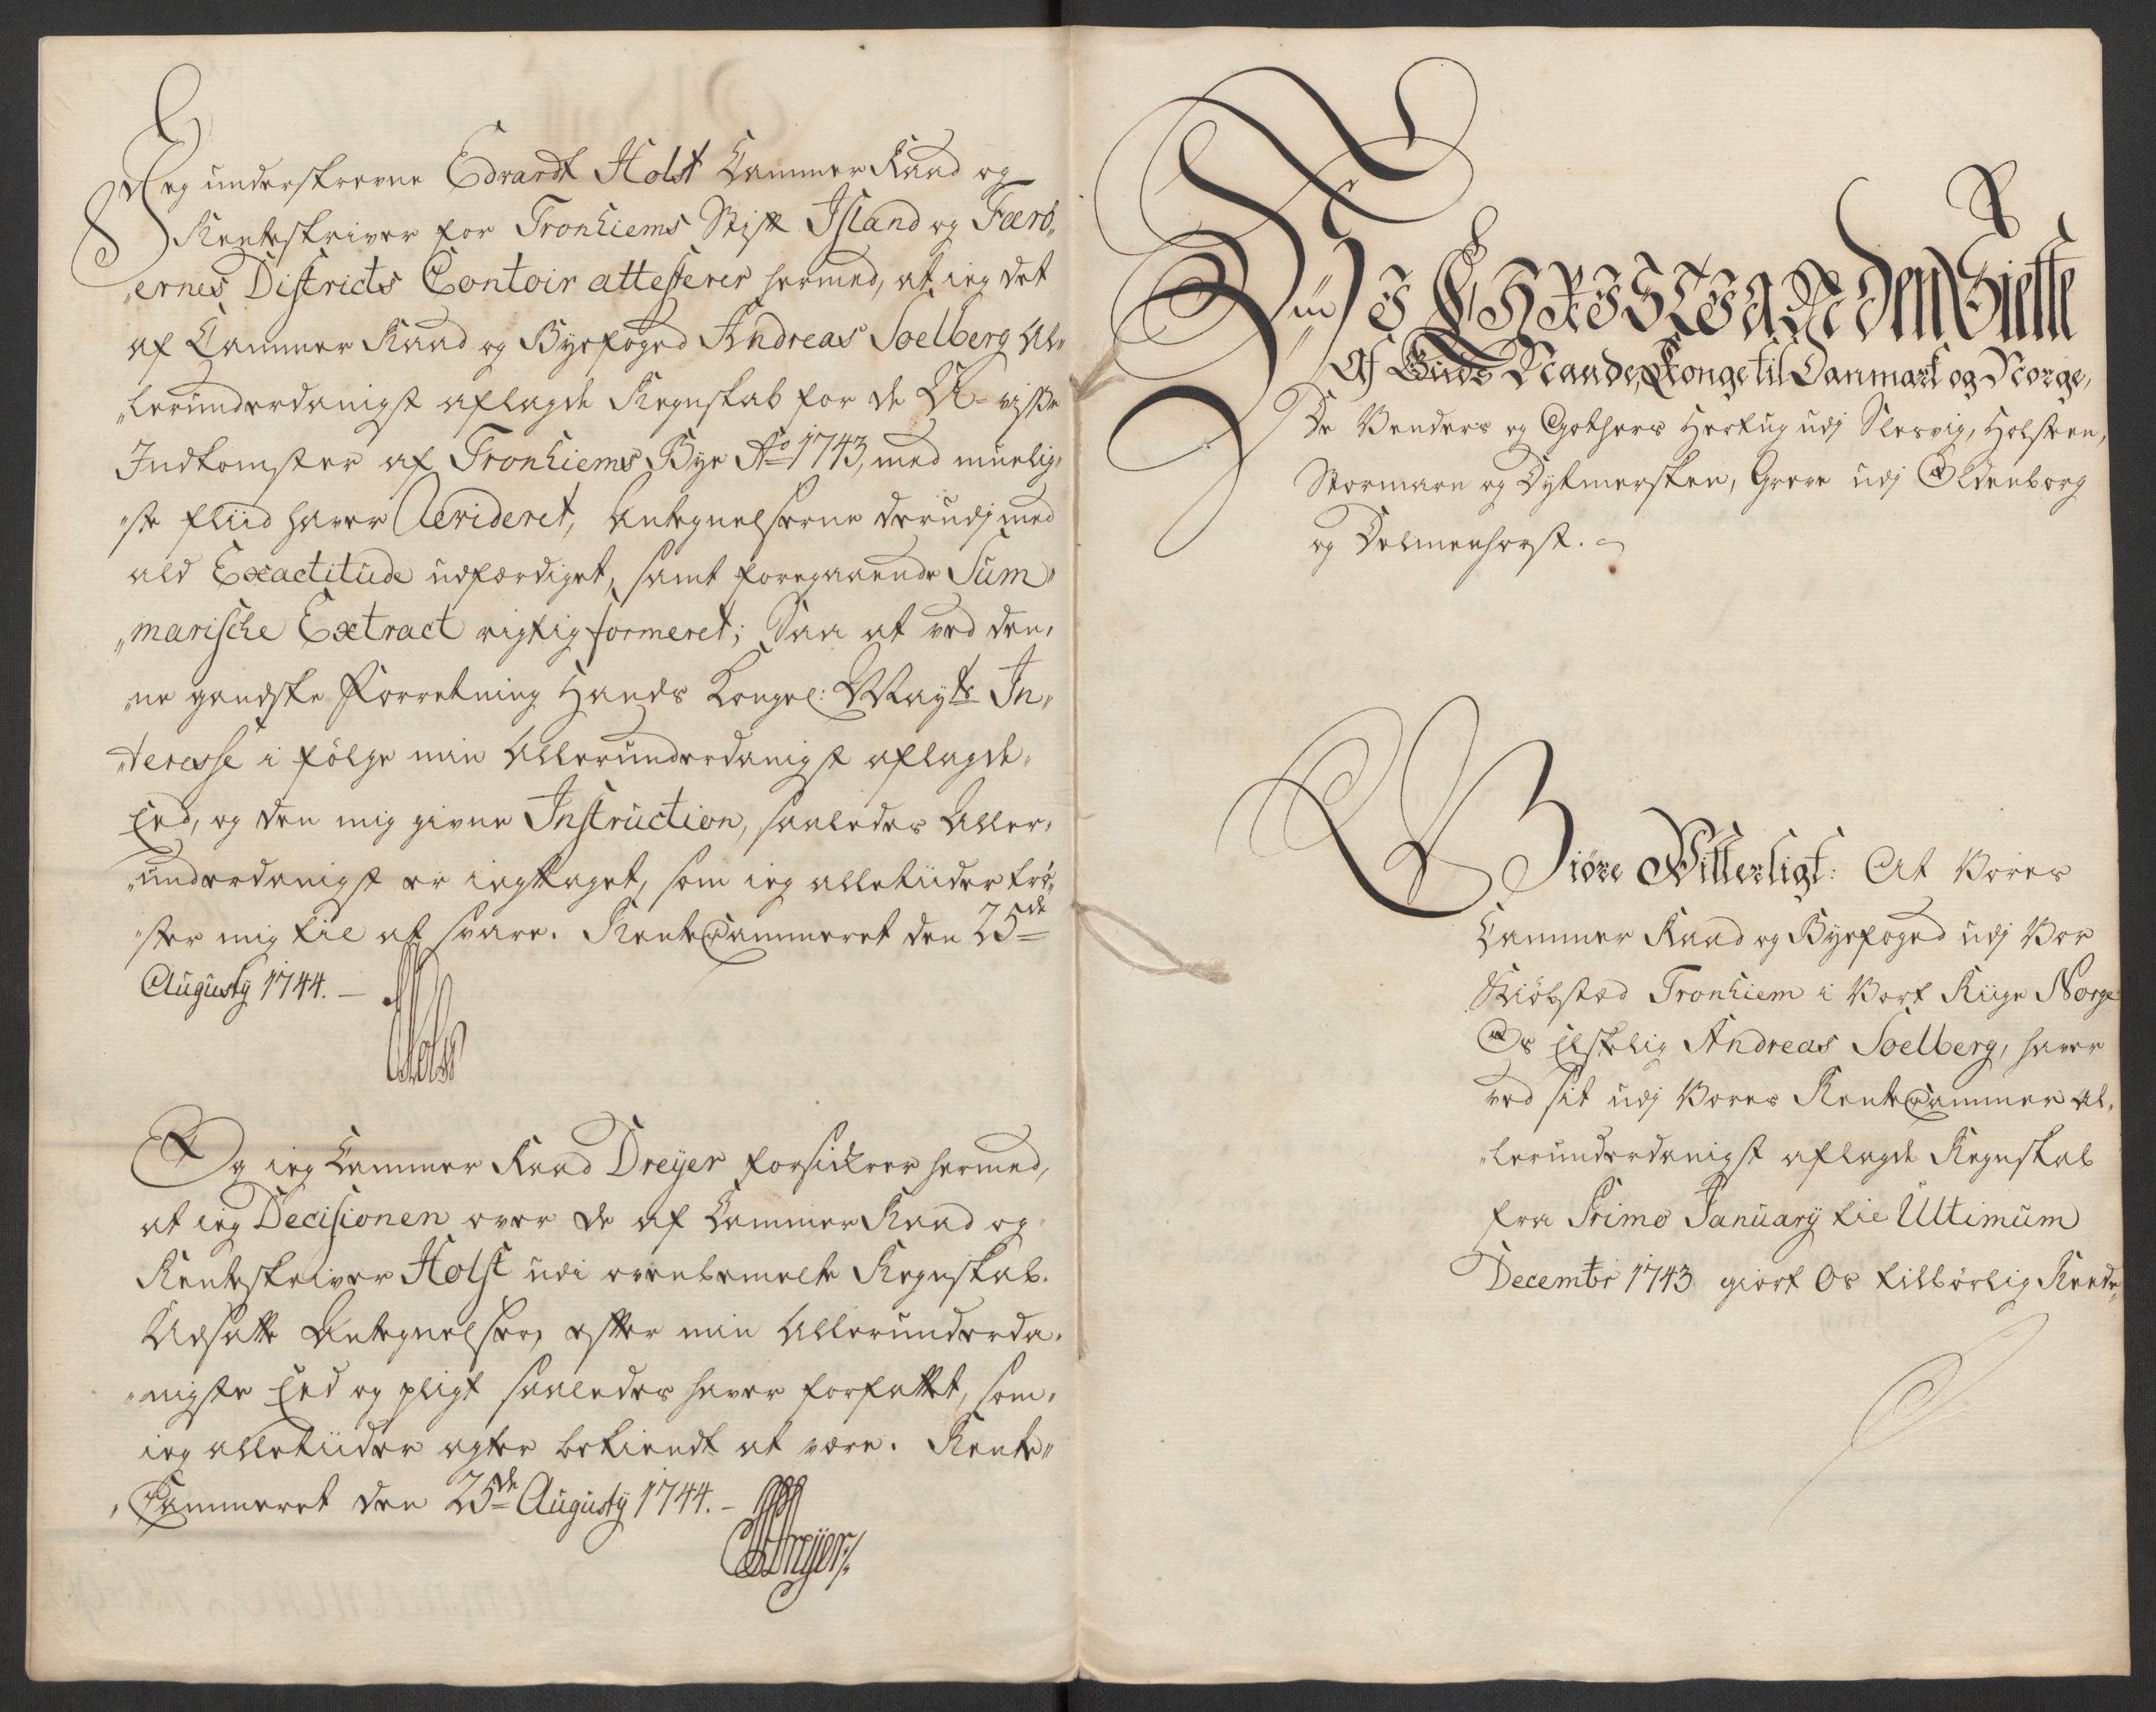 Jeg underskrevne Edvardt Holst Cammer Raad og
Renteskriver for Tronhiems Stift Island og Færö„
„ernes Districts Contoir attesterer hermed, at ieg det
af Cammer Raad og Byefoged Andreas Soelberg Al„
„lerunderdanigst aflagde Regnskab for de U-visse
Indkomster af Tronhiems Bye Ao 1743, med muelig„
„ste fliid haver Revideret, Antegnelserne derudj med
ald Exactitude udfærdiget, samt foregaaende Sum„
„marische Extract rigtig formeret; Saa at ved den„
„ne gandske Forretning Hands Kongel: Mayts In„
„teresse i følge min Allerunderdanigst aflagde
Eed, og den mig givne Instruction, saaledes Aller„
„underdanigst er iagttaget, som ieg alletiider trö„
„ster mig til at svare. RenteCammeret den 25de
Augusty 1744. —
Holst
Og ieg Cammer Raad Dreyer forsickrer hermed,
at ieg Decisionen over de af Cammer Raad og
Renteskriver Holst udi ovenbemelte Regnskab
Udsatte Antegnelser, efter min Allerunderda„
„nigste Eed og pligt saaledes haver forfattet, som
ieg alletiider agter bekiendt at være. Rente„
„Cammeret den 25de Augusty 1744. –
Dreyer
Wii CHRISTIAN den Siette
Af Guds Naade, Konge til Danmark og Norge,
De Venders og Gothers Hertug udj Slesvig, Holsteen,
Stormarn og Dytmersken, Greve udj Oldenborg
og Delmenhorst.
Giøre Witterligt: At Vores
Cammer Raad og Byefoged udj Vor
Kiöbsted Tronhiem i Vort Riige Norge
Os Elskelig Andreas Soelberg, haver
ved sit udj Vores RenteCammer Al„
„lerunderdanigst aflagde Regnskab
fra Primo January til Ultimum
Decembr 1743 giort Os tilbörlig Reede„